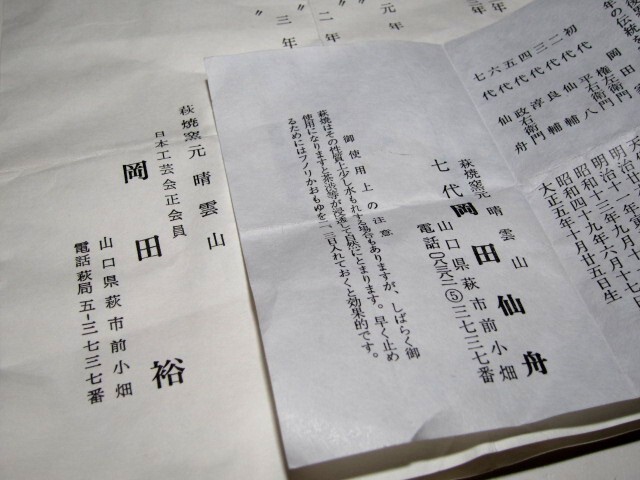 元年
〃
二年
〃
三年
萩焼窯元 晴雲山
日本工芸会正会員
岡田裕
山口県萩市前小畑
電話萩局五ー三七三七番
初代
二代
三代
四代
五代
六代
七代
岡田
権左衛門
平右衛門
仙八
良輔
淳輔
政右衛門
仙舟
明治十
明治三年九月
昭和四十九年六月
昭和
大正五年十月廿五日生
萩焼窯元 晴雲山
七代 岡田仙舟
山口県萩市前小畑
電話〇八三八二⑤三七三七番
御使用上の注意
萩焼はその性質上少し水もれする場合もありますが、しばらく御
使用になりますと茶渋等が浸透して自然にとまります。早く止め
るためにはフノリかおもゆを二、三日入れておくと効果的です。